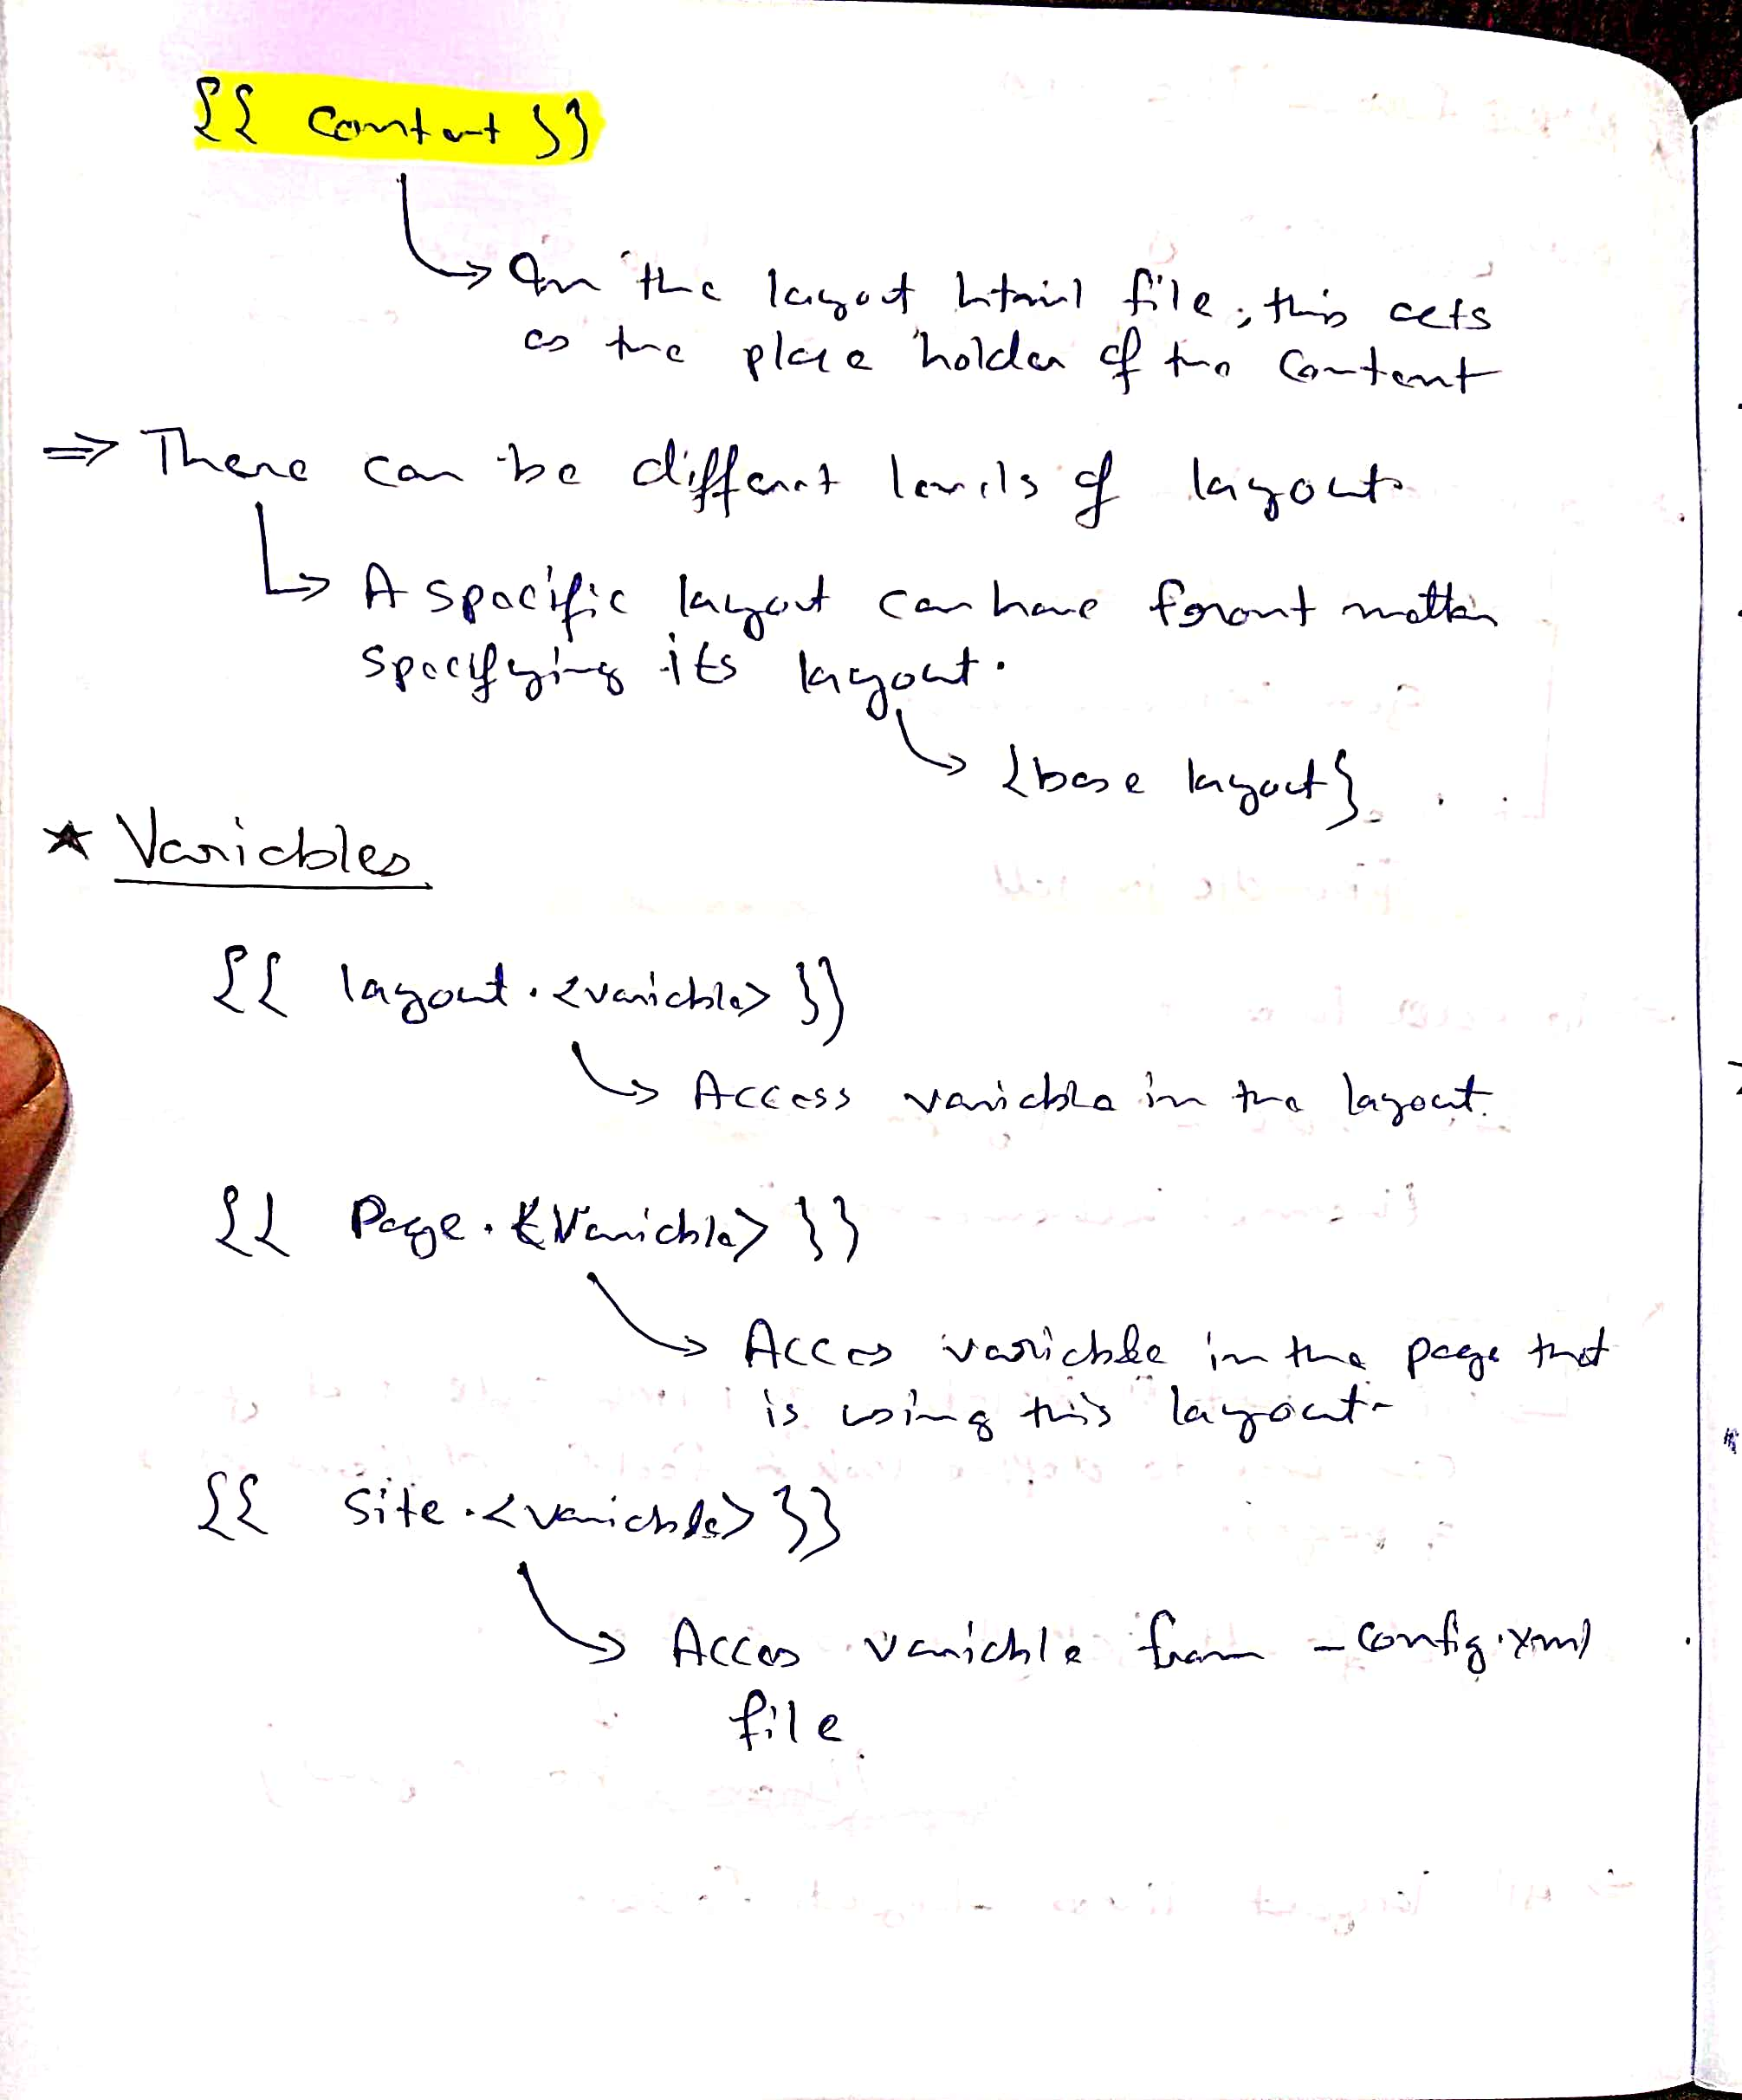 {{ content }}
↳ In the layout html file, this acts
as the place holder of the content
⇒ There can be different levels of layout
↳ A specific layout can have front matter
specifying its layout.
↳ {base layout}
★ Variables
{{ layout.<variable> }}
↳ Access variable in the layout.
{{ Page.<Variable> }}
↳ Access variable in the page that
is using this layout
{{ site.<variable> }}
↳ Access variable from _config.yml
file